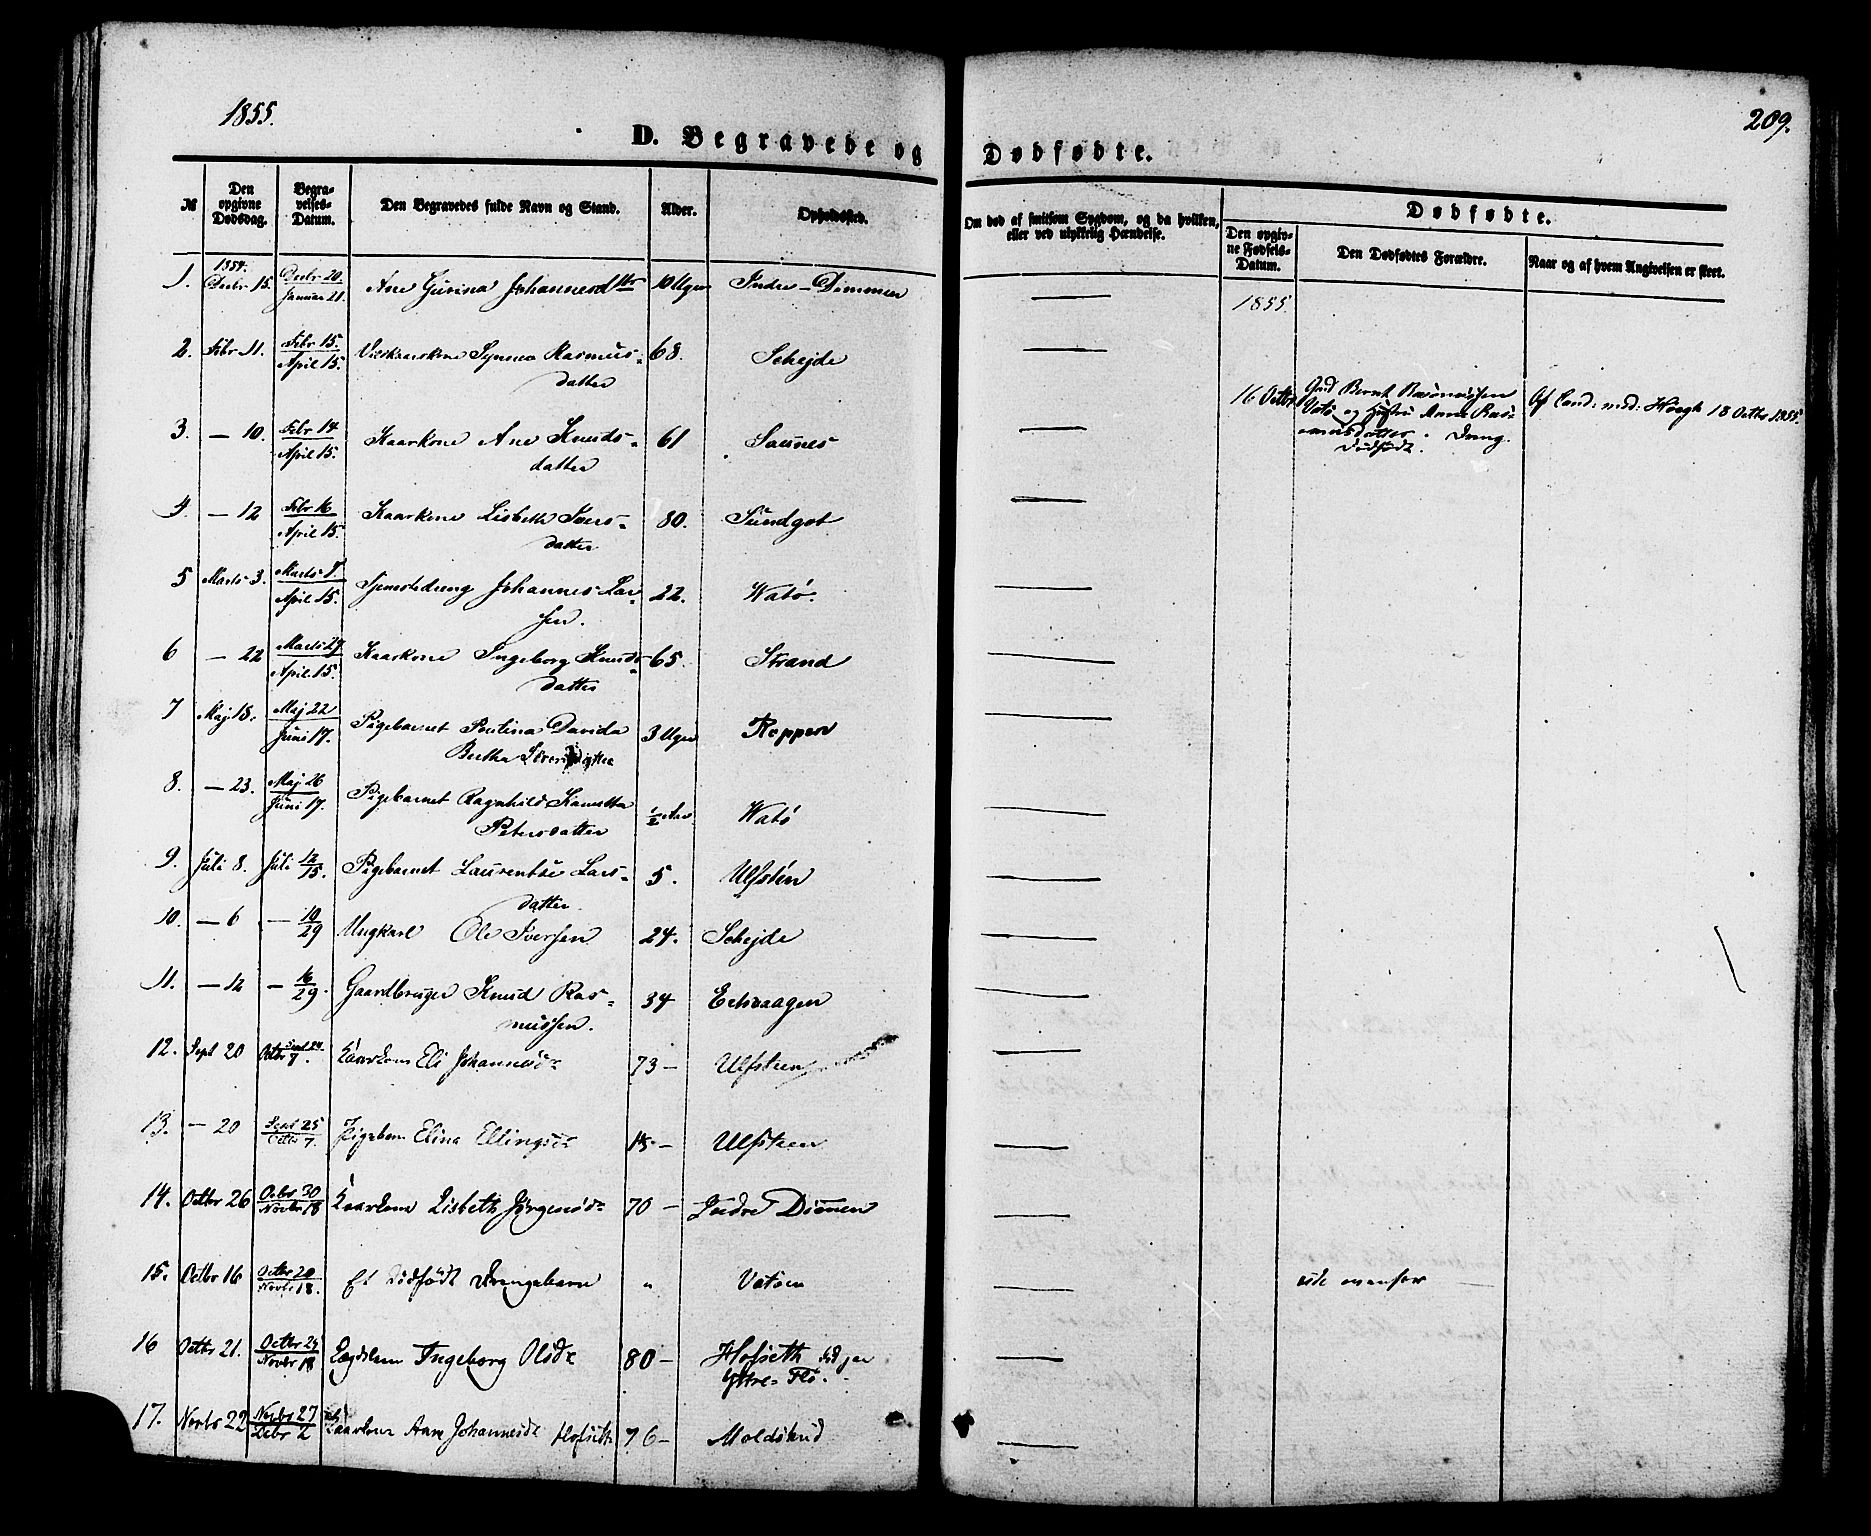 1855.
209.
D. Begravede og Dødfødte.
№
Den opgivne Dødsdag.
Begravelses-Datum.
Den Begravedes fulde Navn og Stand.
Alder.
Opholdssted.
Om død af smitsom Sygdom, og da hvilken, eller ved ulykkelig Hændelse.
Dødfødte.
Den opgivne Fødsels-Datum.
Den Dødfødtes Forældre.
Naar og af hvem Angivelsen er skeet.
1. 1854. Decbr 15. Decbr 20 Januar 21. Ane Gurina Johannesdtr 10 Uger Indre-Dimmen —
1855.
2. Febr 11. Febr 15. April 15. Synneva Rasmus-
datter 68. Schejde —
16 Octbr Bernt Rasmussen
Vatö og Hustru Anne Ras-
musdatter. Dreng
Dödfödt.
Af Cand: med: Hoegh 18 Octbr 1855.
3. — 10. Febr 14 April 15. Kaarkone Ane Knuds-
datter 61 Saunes —
4. — 12 Febr 16 April 15. Kaarkone Lisbeth Ivers-
datter 80. Sundgot —
5 Marts 3. Marts 8. April 15. Tjenestedreng Johannes Lar-
sen. 22. Watö. —
6 — 22 Marts 29 April 15. Kaarkone Ingeborg Knuds-
datter 65. Strand —
7 Maj 18. Maj 22 Juni 17. Pigebarnet Pentina Davida
Bertha 3 Uger Röppen —
8. — 23. Maj 26 Juni 17. Pigebarnet Ragnhild
Petersdatter ½ Aar Watö —
9. Juli 8. Juli 12/15. Pigebarnet Laurentse Lars-
datter 5. Ulfsten —
10. — 6 — 10/29 Ungkarl Ole Iversen 24. Schejde —
11. — 12 — 16/29. Gaardbruger Knud Ras-
mussen. 34 Echvaagen —
12. Sept 20 Sept 24. Octbr 7. Kaarkone Eli Johannesd: 73 — Ulfsteen —
13. — 20 Sept 25 Octbr 7. Pigebarn Elina Ellingsd: 15 — Ulfsteen —
14. Octbr 26 Octbr 30 Novbr 18 Kaarkone Lisbeth Jörgensd: 70 — Indre Dimmen —
15. Octbr 16 Octbr 20 Novbr 18. Et dödfödt Drengebarn " Vatöen —
vide ovenfor
16 Octbr 21. Octbr 25 Novbr 18 Lægdslem Ingeborg Olsd: 80 — Hofseth
Yttre-Flö. —
17. Novbr 22 Novbr 27 Decbr 2 Kaarkone Ane Johannesd: Hofseth 76 — Moldskred —